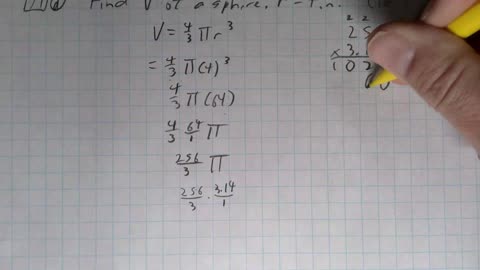 Find V of a sphere.
V = 4/3 πr³
= 4/3 π(4)³
4/3 π(64)
4/3 64/1 π
256/3 π
256/3 · 3.14/1
2 2
2 5
x 3.1
1 0 2
0